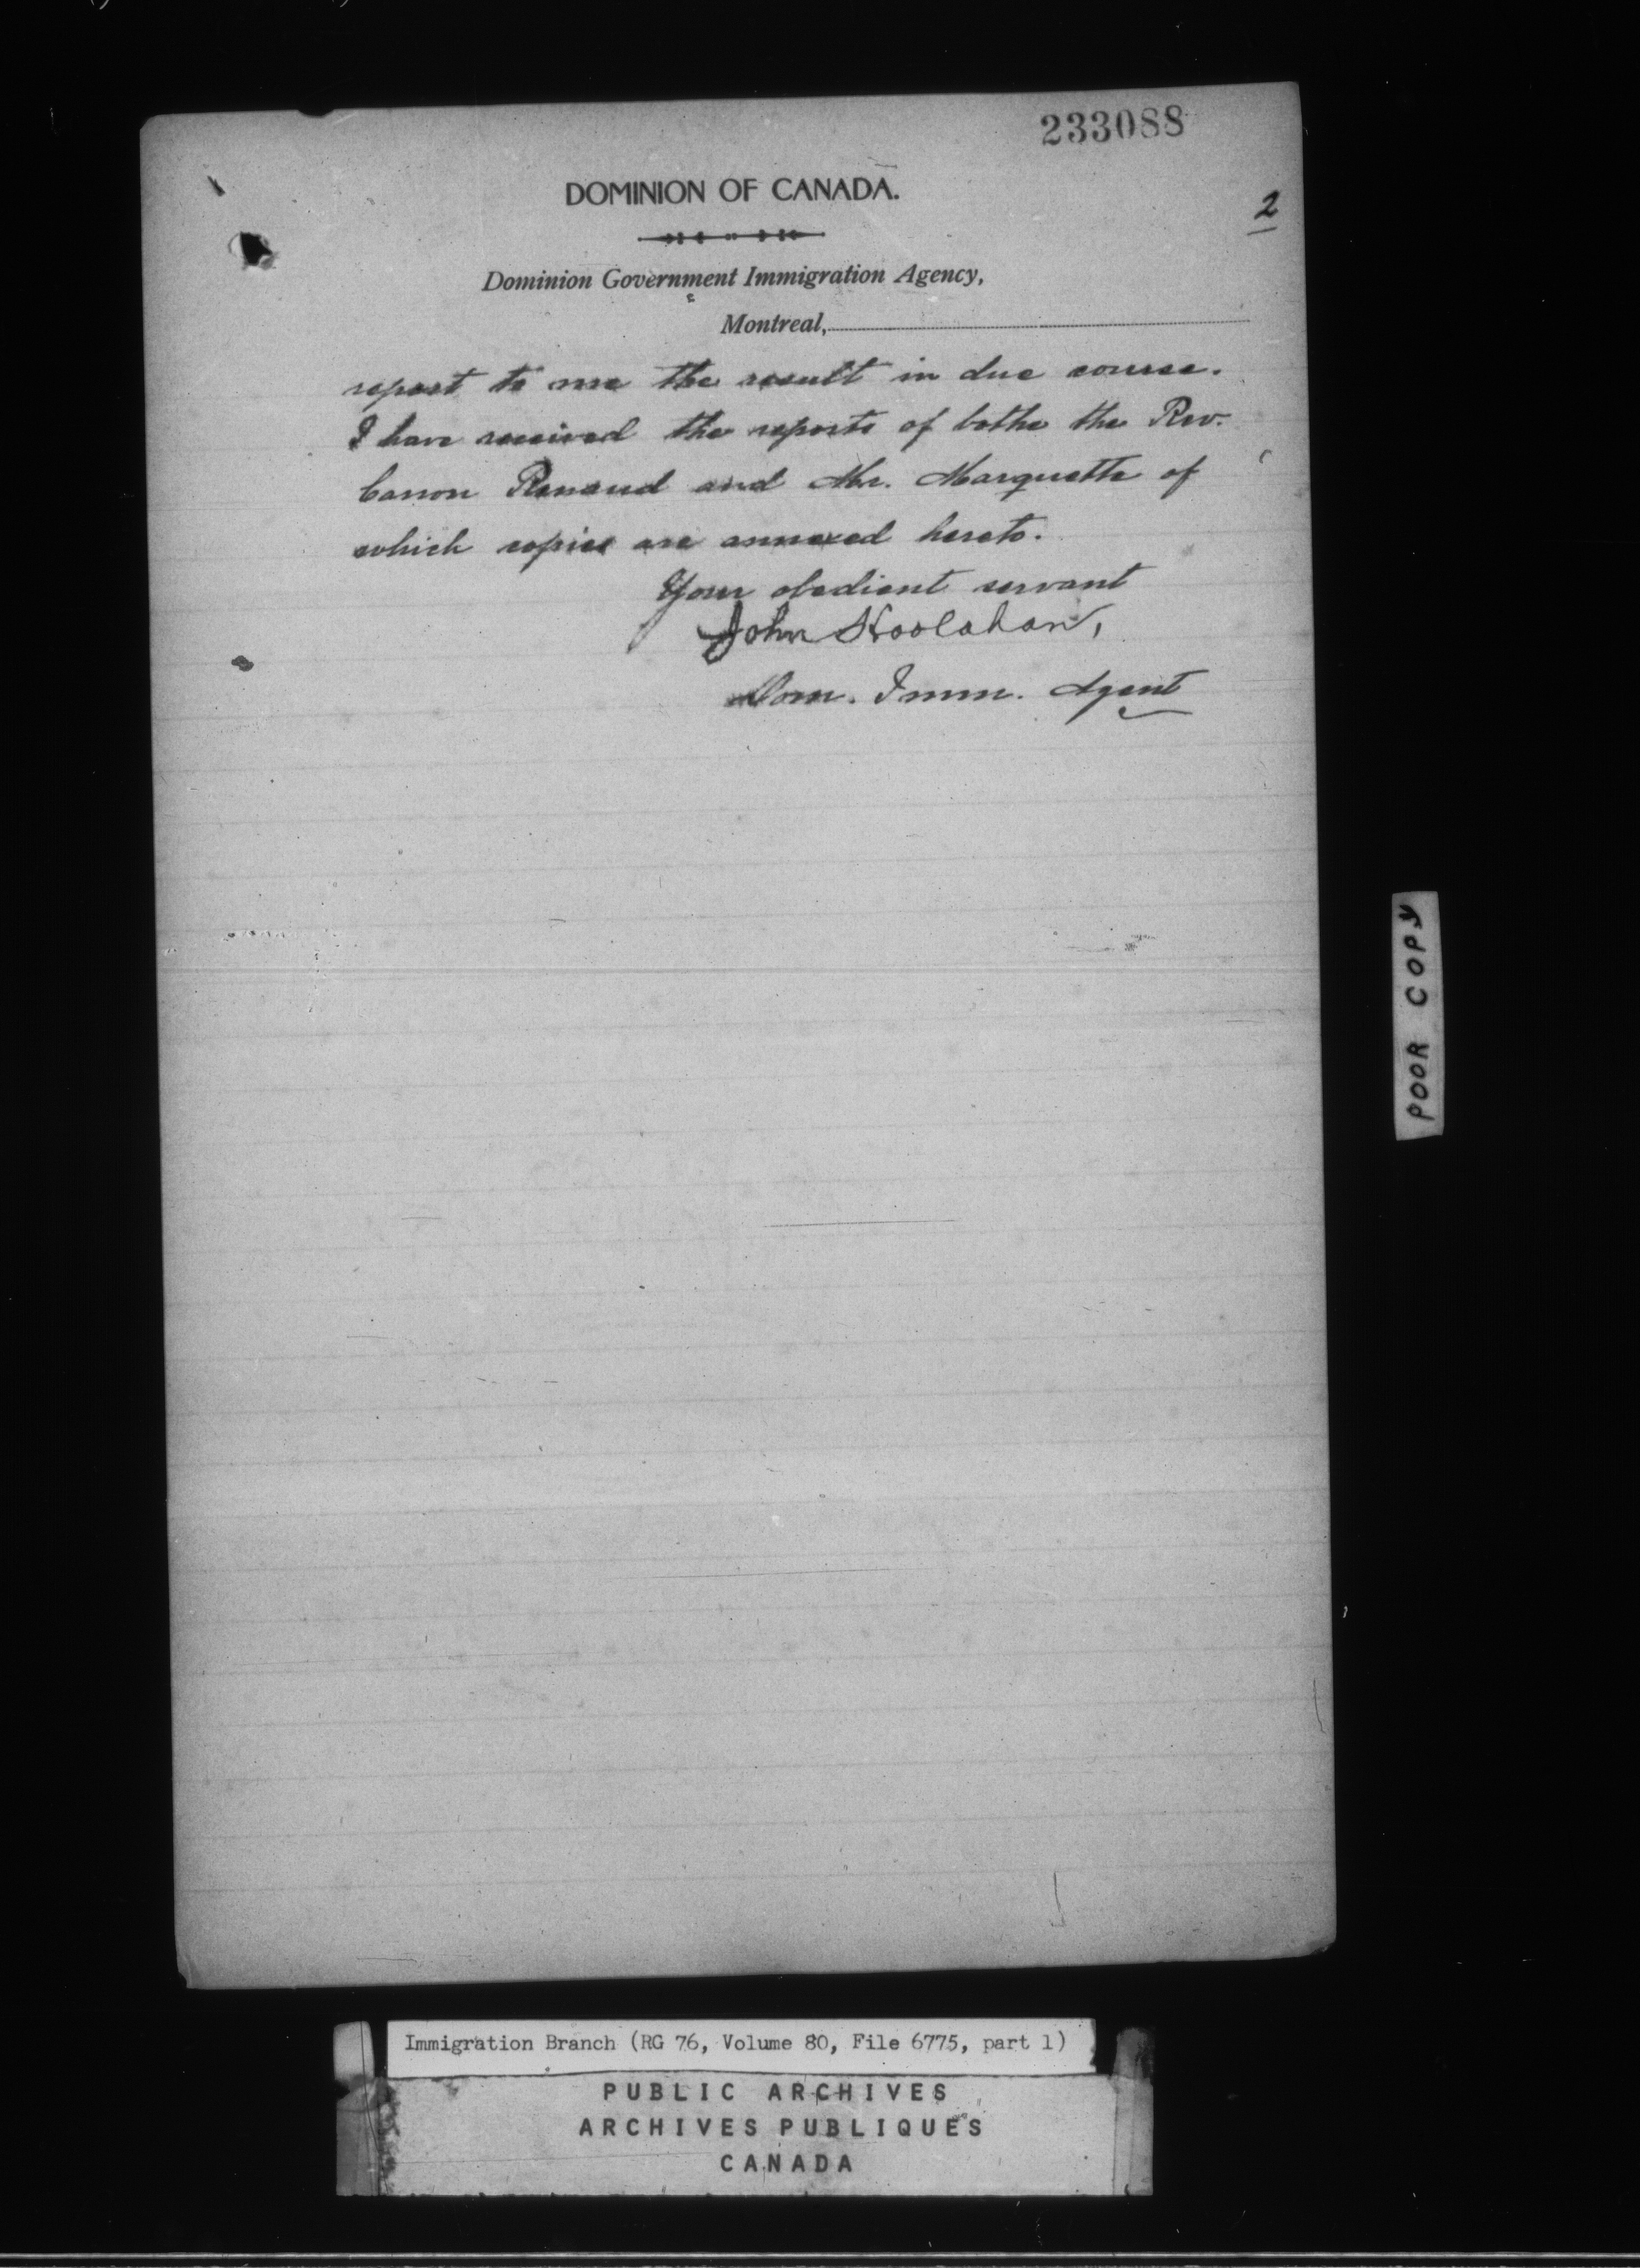 233088
DOMINION OF CANADA.
2
Dominion Government Immigration Agency,
Montreal,
report to me the result in due course.
I have received the reports of bothe the Rev.
Canon Renaud and Mr. Marquette of
which copies are annexed hereto.
Your obedient servant
John Hoolahan,
Dom. Imm. Agent
POOR COPY
Immigration Branch (RG 76, Volume 80, File 6775, part 1)
PUBLIC ARCHIVES
ARCHIVES PUBLIQUES
CANADA